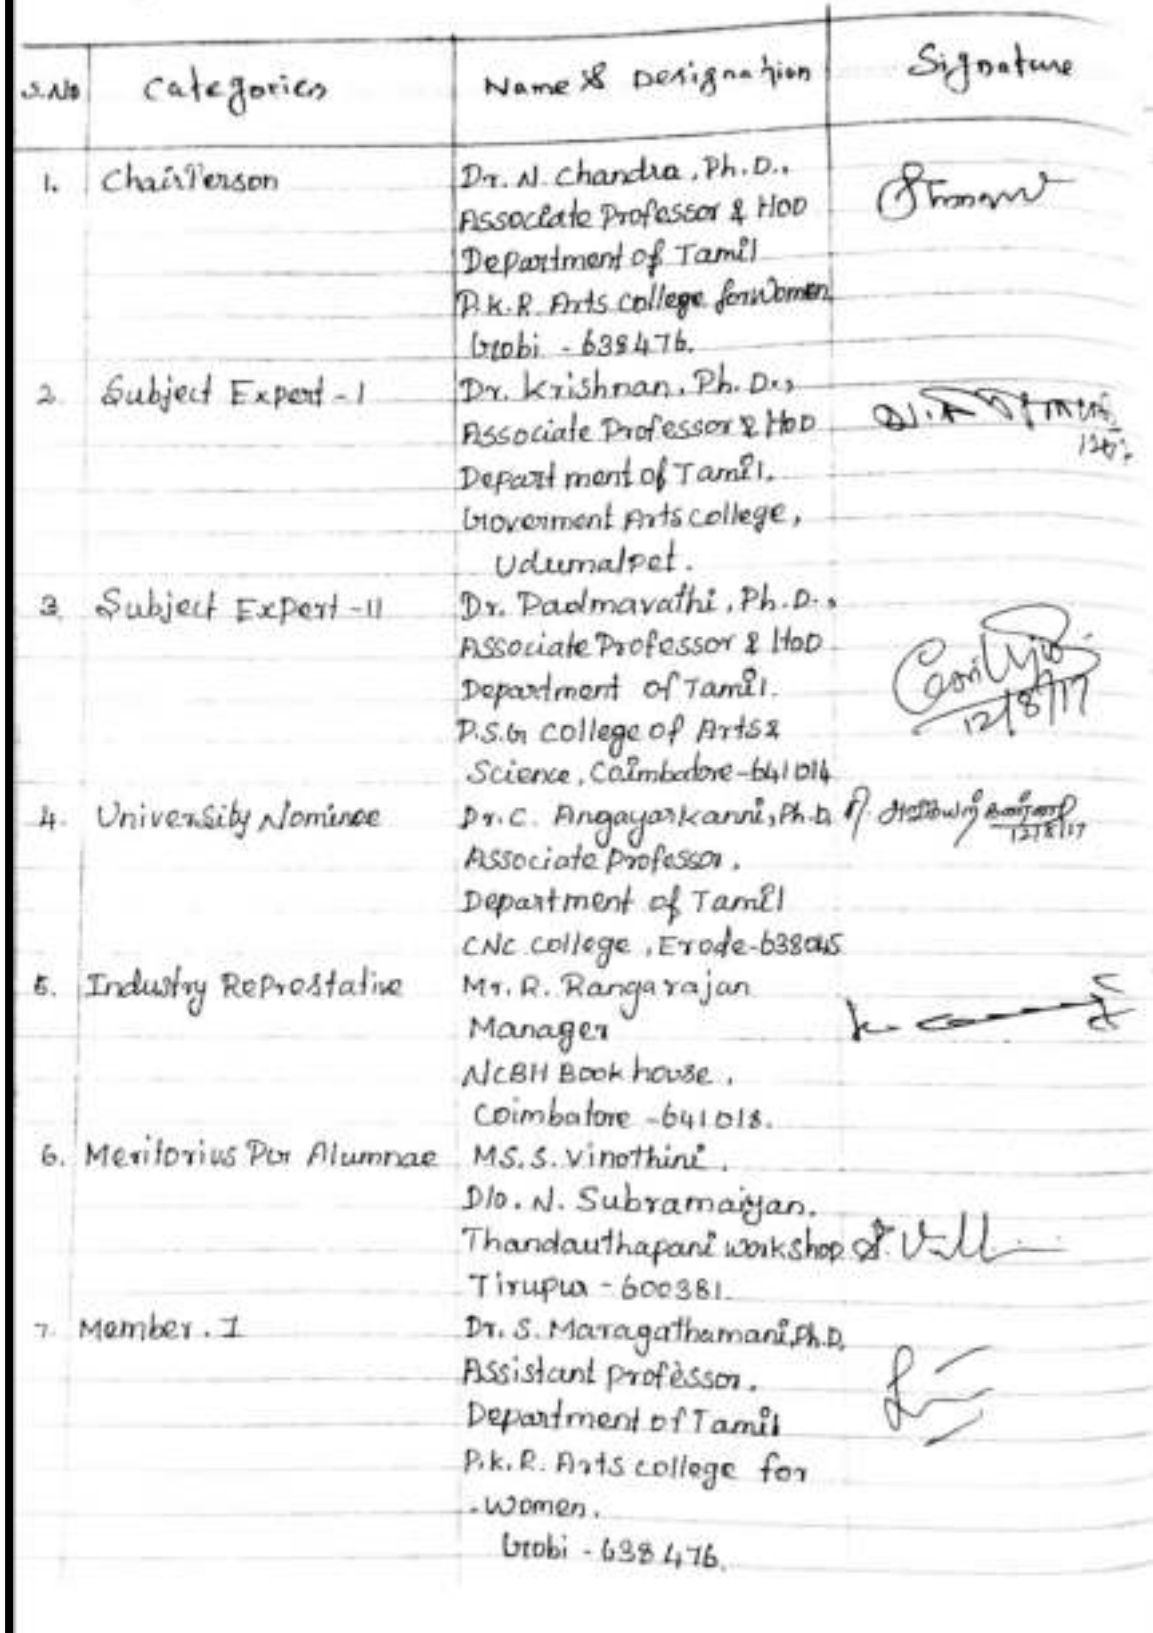 S.No Categories Name & Designation Signature
1. ChairPerson Dr. N. Chandra, Ph.D.,
Associate Professor & HOD
Department of Tamil
P.K.R. Arts college for Women
Gobi - 638476.
2. Subject Expert - I Dr. Krishnan, Ph.D.,
Associate Professor & HOD
Department of Tamil.
Goverment Arts college,
Udumalpet.
3. Subject Expert - II Dr. Padmavathi, Ph.D.,
Associate Professor & HOD
Department of Tamil.
P.S.G college of Arts &
Science, Coimbatore-641014
12/8/17
4. University Nominee Dr. C. Angayarkanni, Ph.D. சி. அங்கயற்கண்ணி
12/8/17
Associate Professor.
Department of Tamil
CNC college, Erode-638045
5. Industry Represtative Mr. R. Rangarajan
Manager
NCBH Book house,
Coimbatore - 641018.
6. Meritorius Pur Alumnae MS. S. Vinothini,
D/o. N. Subramaiyan.
Thandauthapani workshop S.
Tirupur - 600381.
7. Member. I Dr. S. Maragathamani, Ph.D.
Assistant professor.
Department of Tamil
P.K.R. Arts college for
women.
Gobi - 638476.